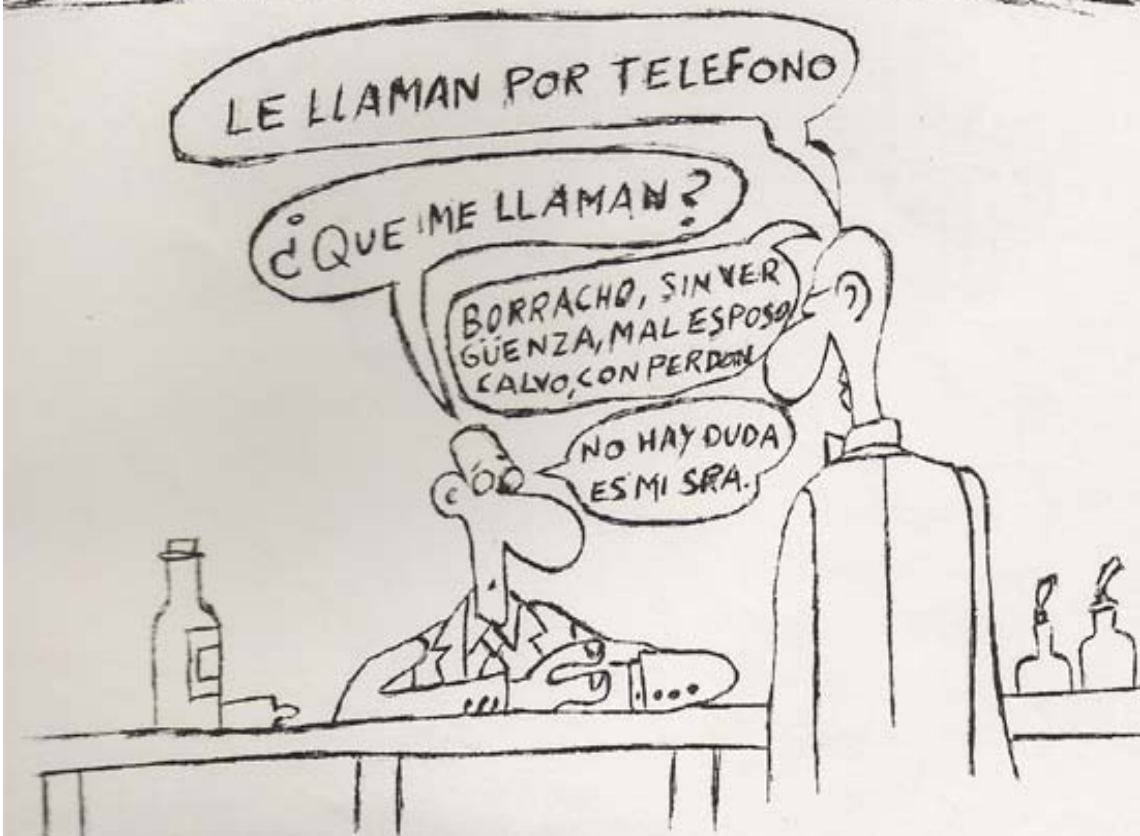 LE LLAMAN POR TELEFONO
¿QUE ME LLAMAN?
BORRACHO, SIN VER
GÜENZA, MAL ESPOSO
CALVO, CON PERDON
NO HAY DUDA
ES MI SRA.